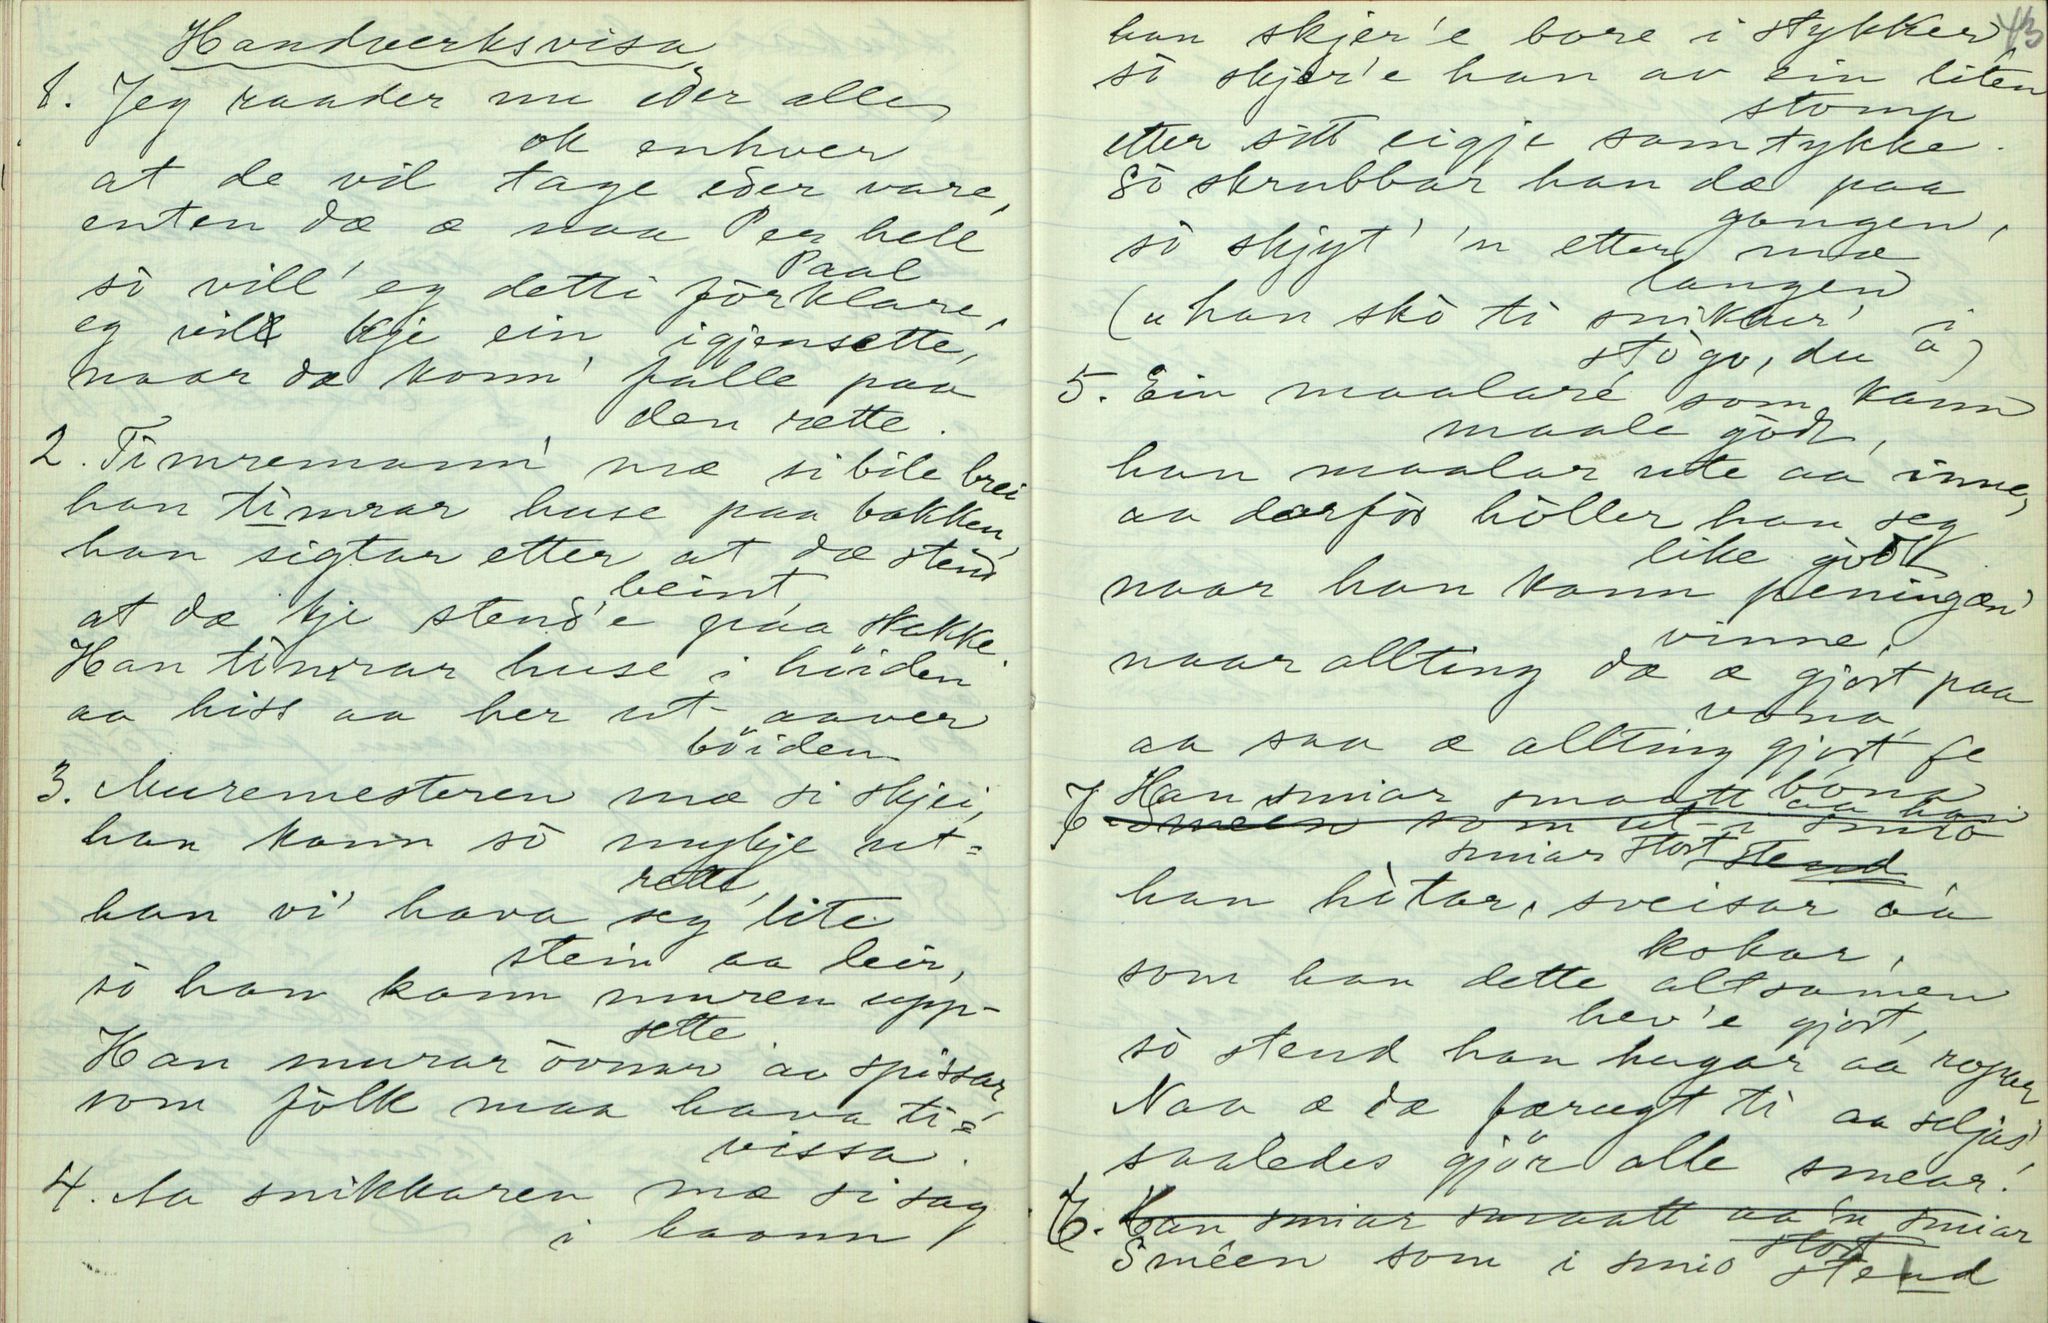 Handverksvisa
1. Jeg raader nu eder alle
ok enhver
at de vil tage eder vare,
enten dæ æ naa Per hell
Paal
so vill' eg detti förklare,
eg vill kje ein igjensette,
naar dæ konn' falle paa
den rette.
2. Timremann' mæ si bile brei
han timrar huse paa bakken,
han sigtar etter at dæ stend
beint
at dæ kje stend'e paa skakke.
Han timrar huse i höiden
aa hiss aa her ut aaver
böiden
3. Muremesteren mæ si skjei,
han kann so mykje ut=
rette,
han vi' hava seg lite
stein aa leir,
so han kann muren upp-
sette
Han murar ovnar av spissar
som folk maa hava ti=
vissa.
4. Aa snikkaren mæ si sag
i haann
43
han skjer'e bore i stykker,
so skjer'e han av ein liten
stomp
etter sitt eigje samtykke.
So skrubbar han dæ paa
gongen,
so skjyt' 'n etter mæ
langen
(u han sko ti snikker' i
stogo, du å)
5. Ein maalare som kann
maale godt,
han maalar ute aa inne,
aa dærfor höller han seg
like godt
naar han kann peningæn'
vinne,
naar allting dæ æ gjort paa
vona,
aa saa æ allting gjort fe
bona
7 Han smiar smaatt aa han
Smeen som ut-i smio
smiar stort stend
han hitar, sveisar aa
kokar,
som han dette altsamen
hev'e gjort,
so stend han hugar aa ropar
Naa æ dæ færugt ti aa seljas'
saaledes gjör alle smear!
6. Han smiar smaatt aa'n smiar
stort
Smeen som i smio stend